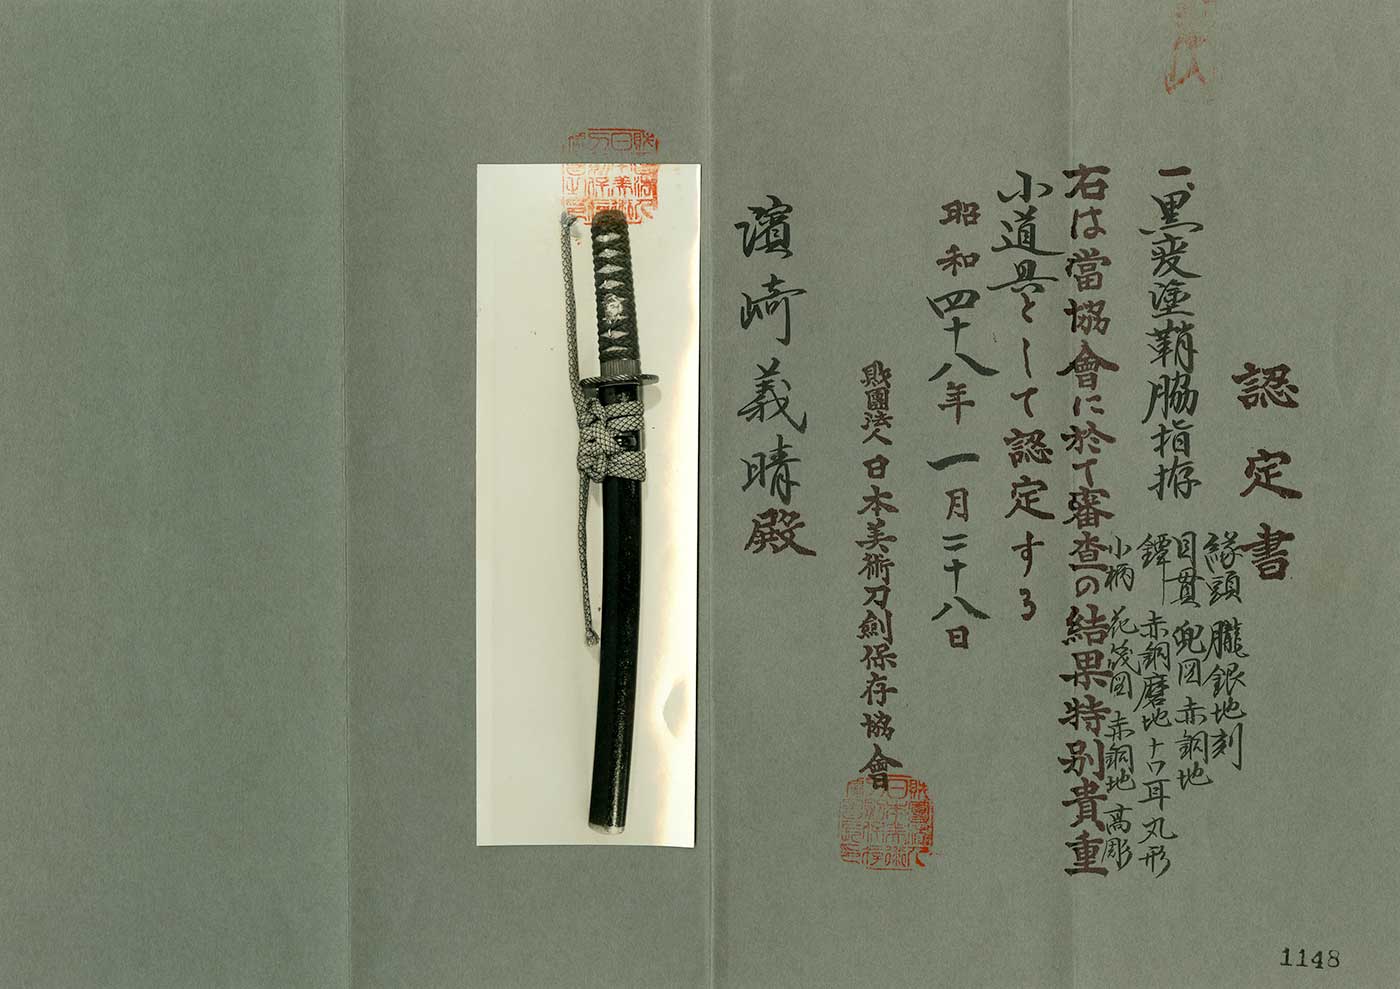 認定書
一、黒変塗鞘脇指拵
縁頭 朧銀地刻
目貫 兜図 赤銅地
鐔 赤銅磨地 十口耳丸形
小柄 花筏図 赤銅地 高彫
右は當協會に於て審査の結果特別貴重
小道具として認定する
昭和四十八年一月二十八日
財團法人日本美術刀劍保存協會
濱崎義晴殿
1148